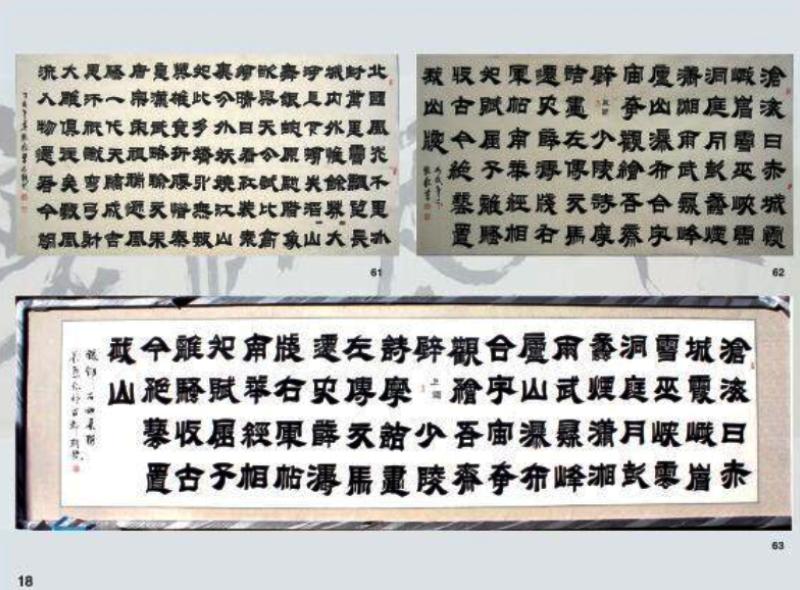 北國風光千里冰
封萬里雪飄望長
城内外惟餘莽大
河上下頓失滔山
舞銀蛇原馳臘象
欲與天公試比高
須晴日看紅裝素
裹分外妖嬈江山
如此多嬌引無數
英雄竟折腰惜秦
皇漢武略輸文采
唐宗宋祖稍遜風
騷一代天驕成吉
思汗祇識彎弓射
大雕俱往矣數風
流人物還看今朝
61
滄海日赤城霞
峨眉雪巫峽雲
洞庭月彭蠡煙
瀟湘雨武夷峰
廬山瀑布合宇
宙奇觀繪吾齋
壁少陵詩摩
詰畫左傳文馬
遷史薛濤箋右
軍帖南華經相
如賦屈子離騷
收古今絕藝置
我山窗
62
滄海日赤
城霞峨眉
雪巫峽雲
洞庭月彭
蠡煙瀟湘
雨武夷峰
廬山瀑布
合宇宙奇
觀繪吾齋
壁上聯少陵
詩摩詰畫
左傳文馬
遷史薛濤
箋右軍帖
南華經相
如賦屈子
離騷收古
今絕藝置
我山
63
18